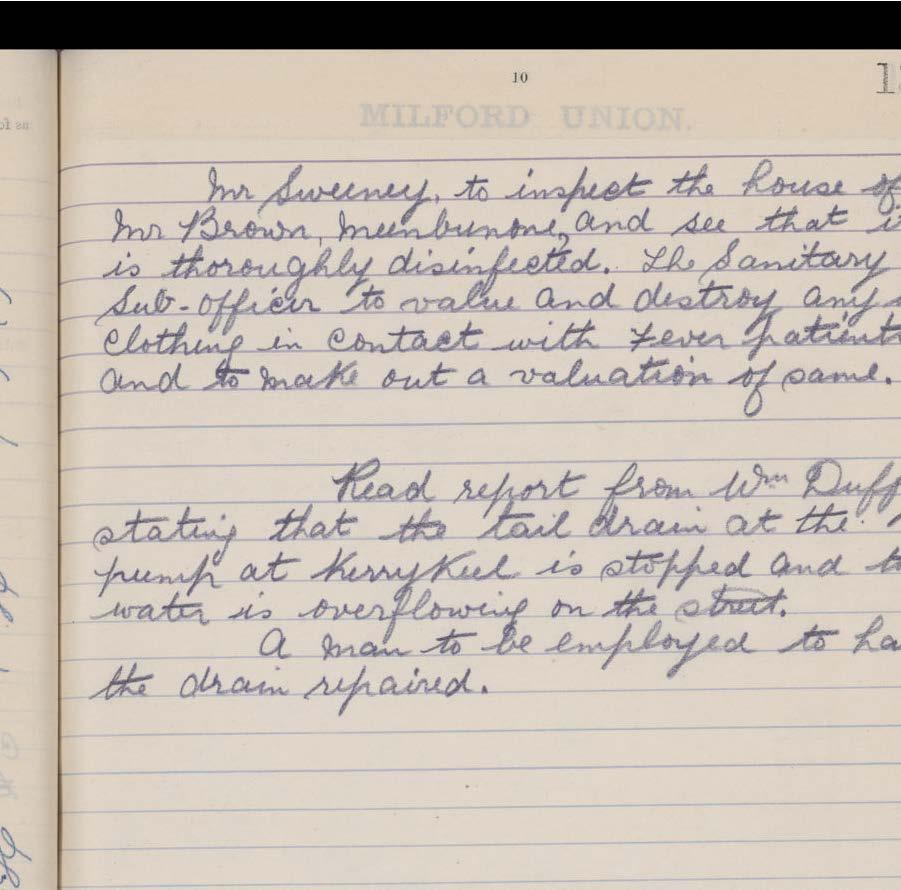 10
MILFORD UNION.
Mr Sweeney, to inspect the house of
Mr Brown, Meenbunone, and see that i
is thoroughly disinfected. The Sanitary
Sub-officer to value and destroy any
Clothing in Contact with Fever patient
and to make out a valuation of same.
Read report from Wm Duff
stating that the tail drain at the
pump at Kerrykeel is stopped and t
water is overflowing on the street.
A man to be employed to ha
the drain repaired.